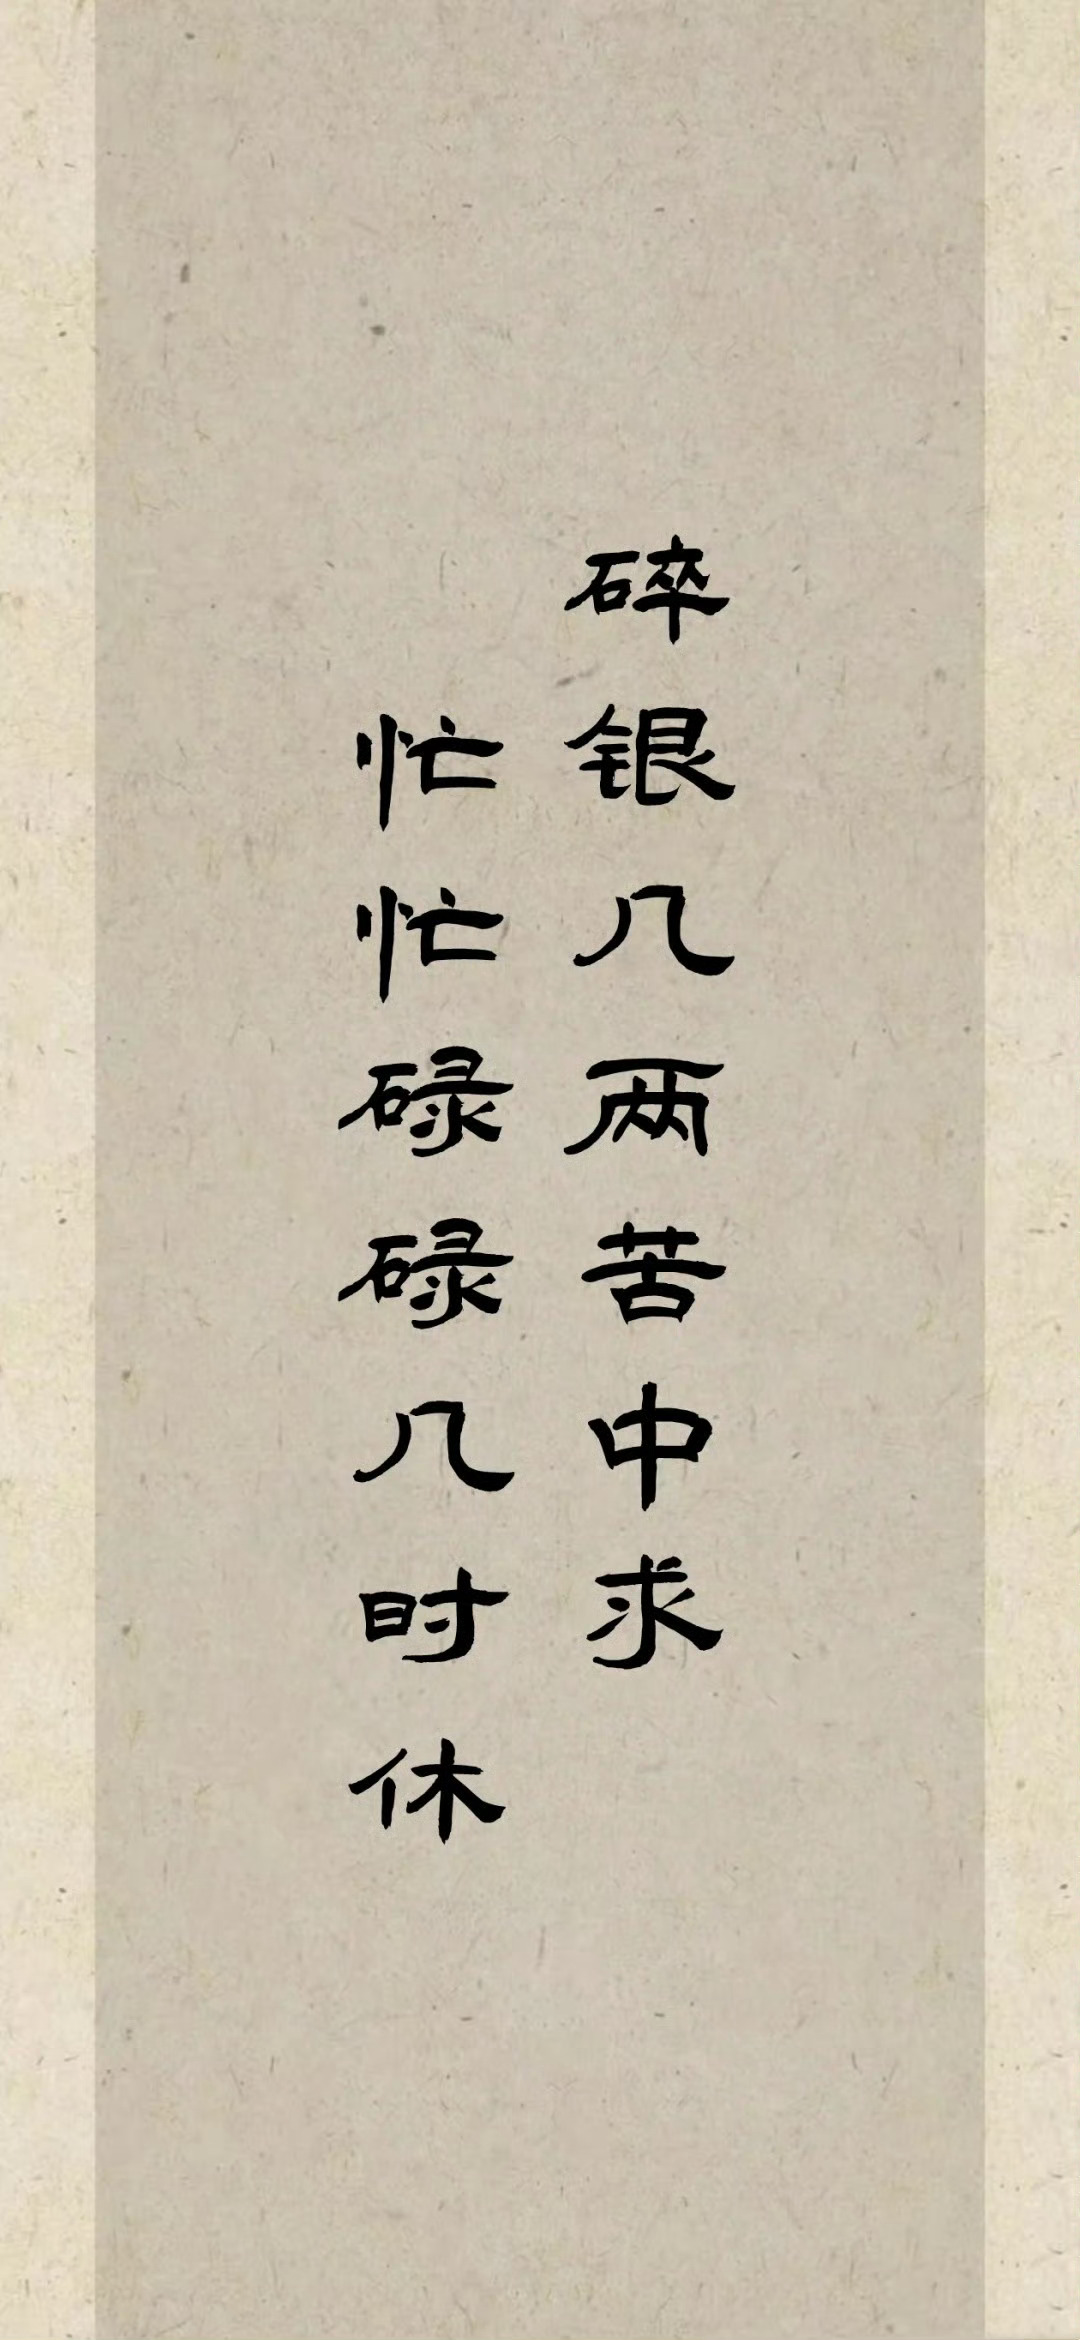 碎银几两苦中求
忙忙碌碌几时休